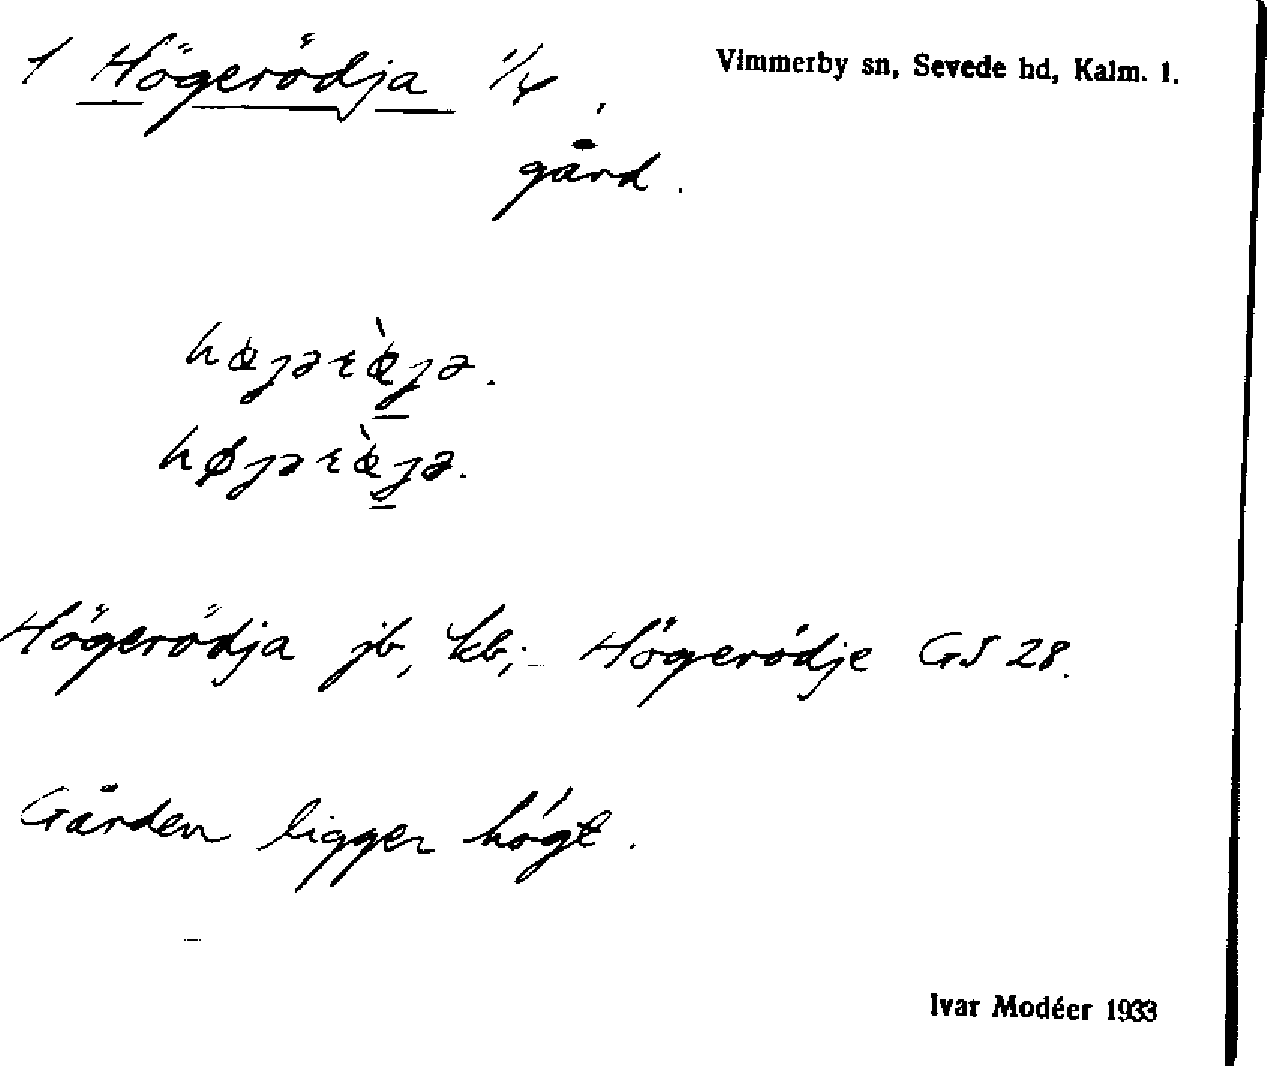 1 Högerödja 1/4,
Vimmerby sn, Sevede hd, Kalm. l.
gård.
hœȷərœ̀ȷə.
høȷərœ̀ȷə.
Högerödja jb, kb; Högerödje GS 28.
Gården ligger högt.
Ivar Modéer 1933